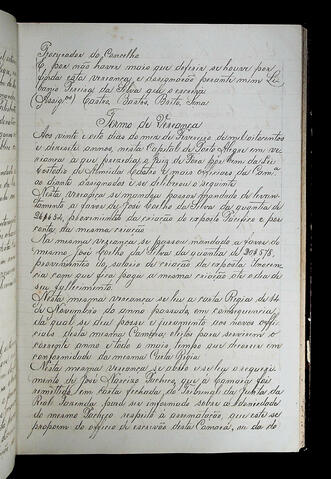 Procurador do Concelho
E, por não haver mais que deferir se houve por
finda esta vereança e designação perante mim Li-
banio Pereira da Silva que o escrevi
Assig.dos Castro, Bastos, Brito, Lima
Termo de Vereança
Aos vinte e oito dias do mez de Fevereiro de mil oitocentos
e dezesete annos, nesta Capital de Porto Alegre em ve-
reança a que presedia o Juiz de Fora por bem da lei
Custodio de Almeida Castro e mais officiaes da Cam.ra
ao diante designados e se deliberou o seguinte
Nesta vereança se mandou passar mandado de levan-
tamento a favor de José Coelho da Silva da quantia de
proveniente da criação do exposto Pacifico e por
conta da mesma criação
Na mesma vereança se passou mandado a favor do
mesmo José Coelho da Silva da quantia de 30$578,
proveniente do salario da criação da exposta Innocen-
cia com que fica paga a mesma criação até o dia do
seu fallecimento.
Nesta mesma vereança se leu a carta Regia de 14
de Novembro do anno passado, em consequencia
da qual se deu posse e juramento aos novos offi-
ciaes desta mesma Camara, eleitos para servirem o
corrente anno e todo o mais tempo que decorrer em
conformidade da mesma Carta Regia
Nesta mesma vereança se abrio e se leu o requeri-
mento de José Narciso Pacheco, que a Camara foi
remettido em carta fechada do Tribunal da Junta da
Real Fazenda para ser informado sobre a idoneidade
do mesmo Pacheco respeito á arrematação, que este se
propoem do officio de escrivão desta Camara, ou da do